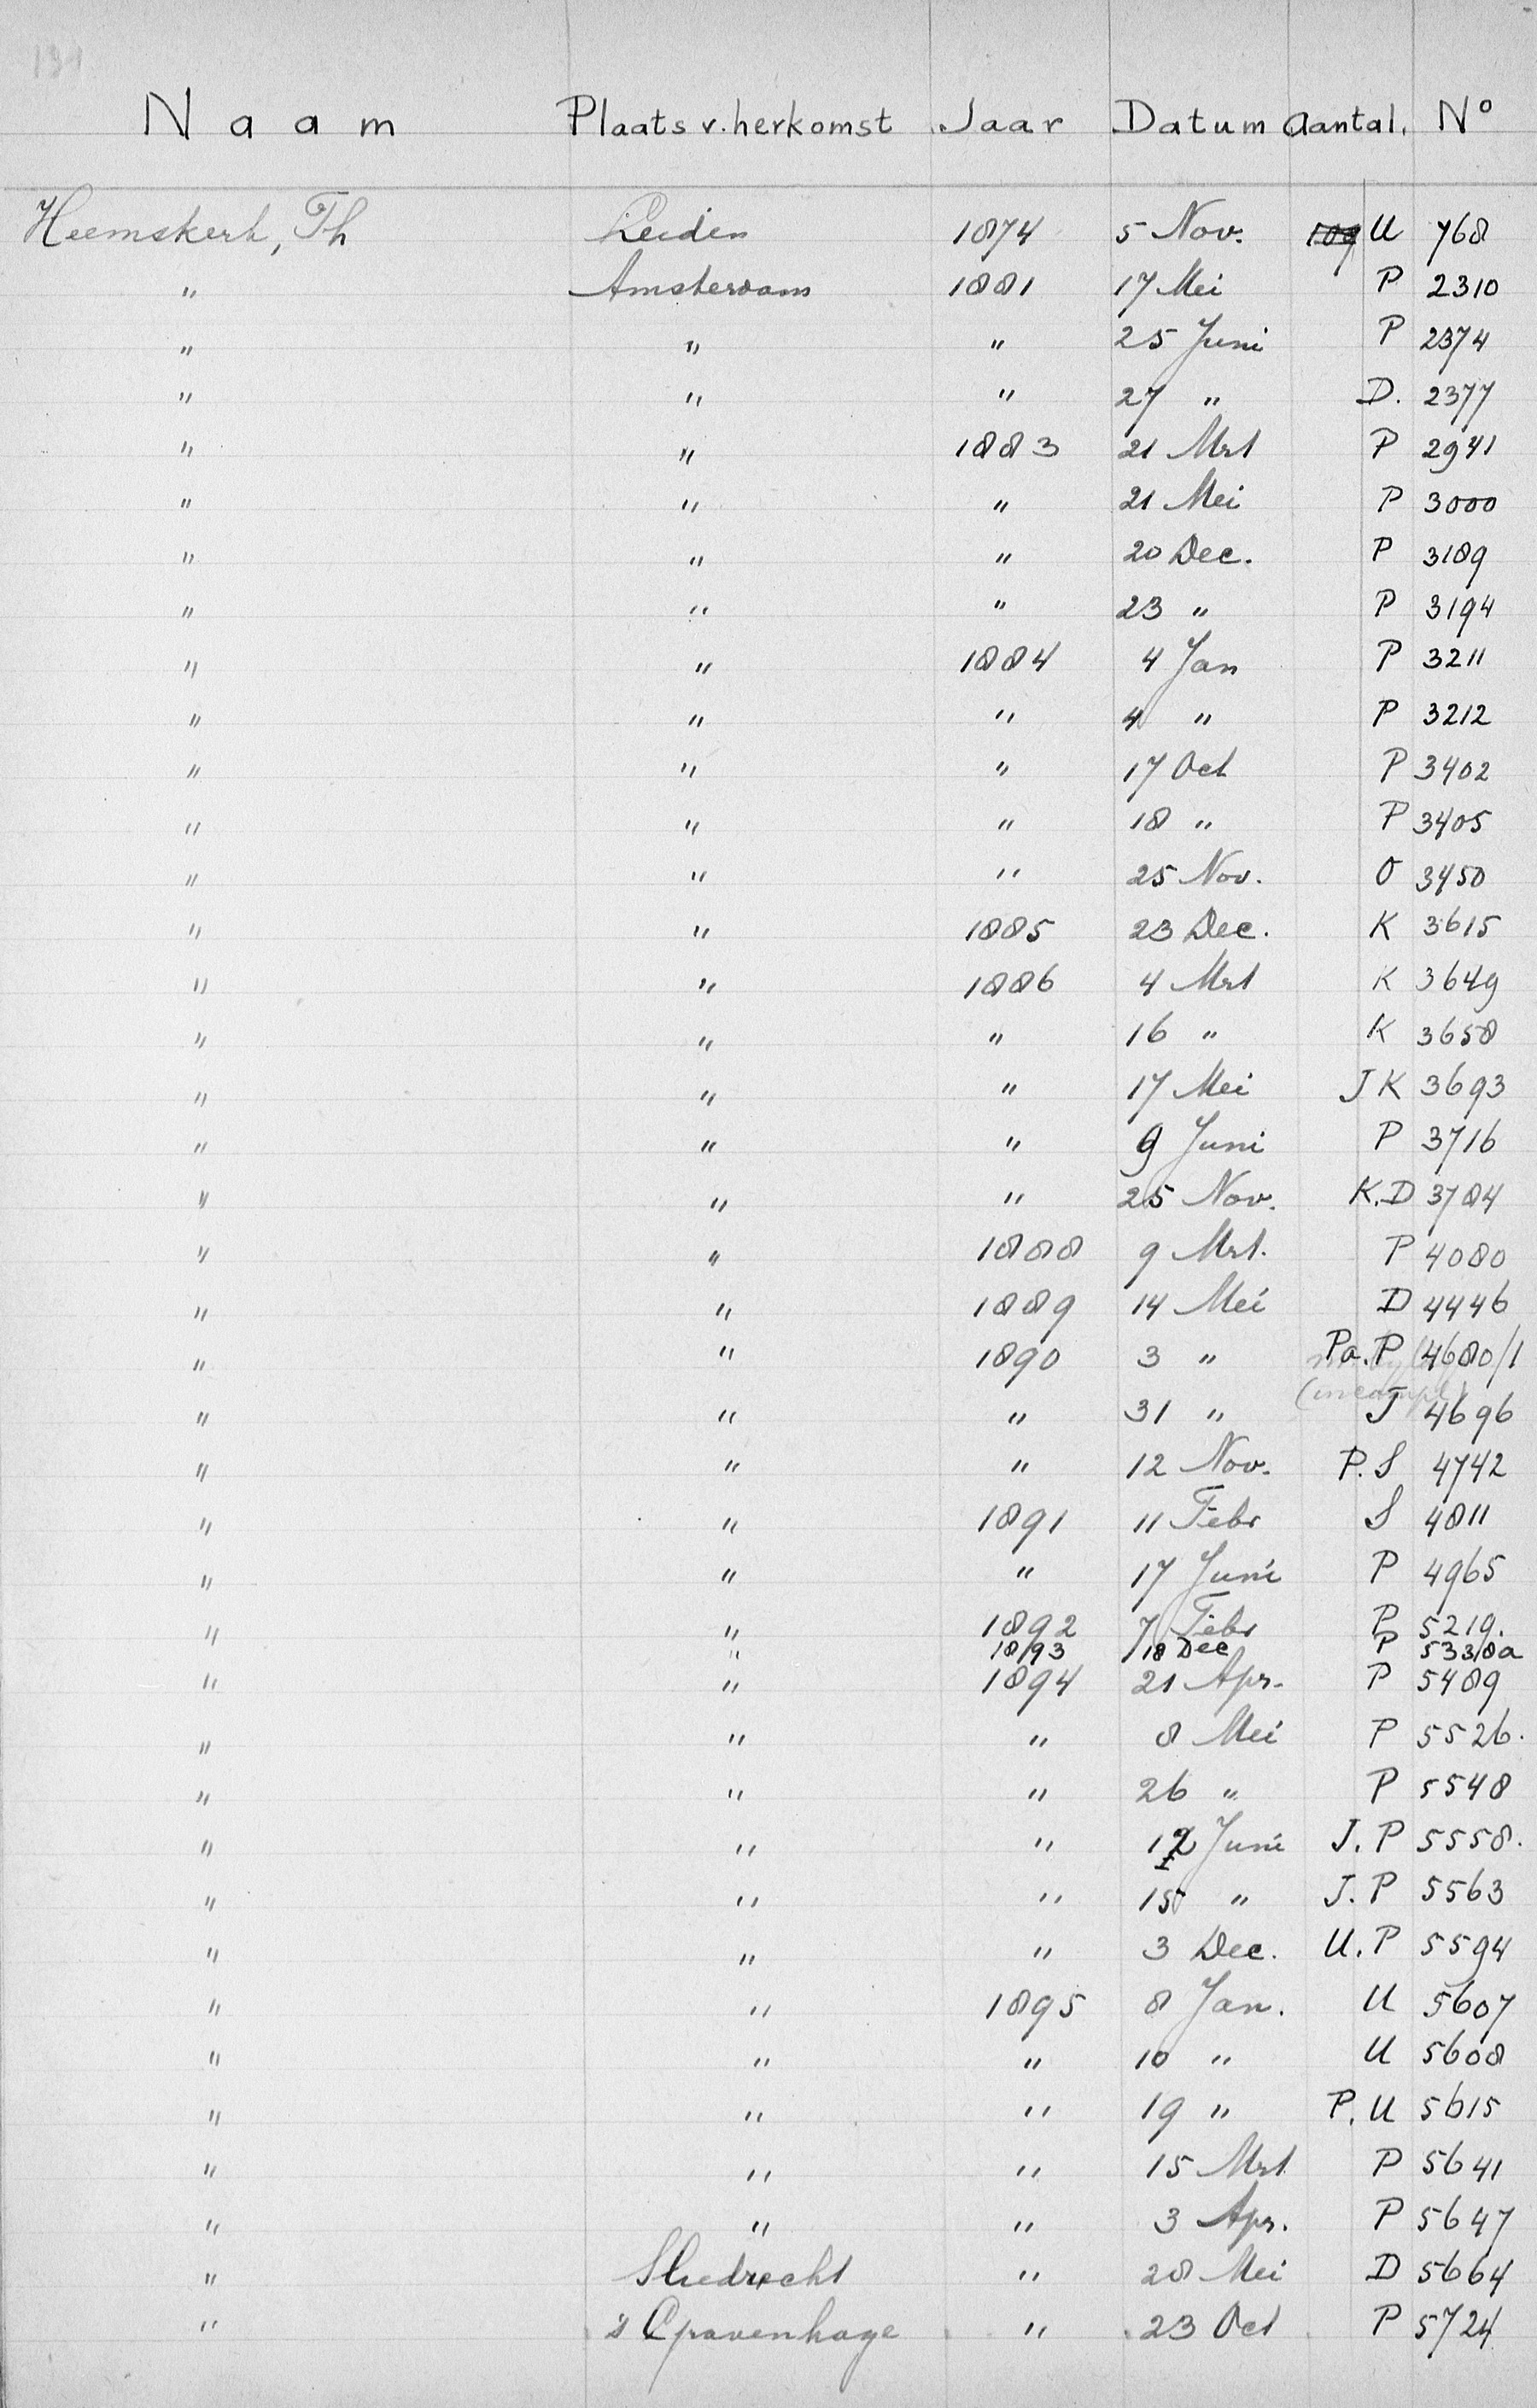 131
Naam Plaats v. herkomst Jaar Datum Aantal. Nº
Heemskerk, Th Leiden 1874 5 Nov. 109 U 768
" Amsterdam 1881 17 Mei P 2310
" " " 25 Juni P 2374
" " " 27 " D. 2377
" " 1883 21 Mrt P 2941
" " " 21 Mei P 3000
" " " 20 Dec. P 3189
" " " 23 " P 3194
" " 1884 4 Jan P 3211
" " " 4 " P 3212
" " " 17 Oct P 3402
" " " 18 " P 3405
" " " 25 Nov. O 3450
" " 1885 23 Dec. K 3615
" " 1886 4 Mrt K 3649
" " " 16 " K 3658
" " " 17 Mei J K 3693
" " " 9 Juni P 3716
" " " 25 Nov. K.D 3784
" " 1888 9 Mrt. P 4080
" " 1889 14 Mei D 4446
" " 1890 3 " Pa. P 4680/1
(incompl)
" " " 31 " J 4696
" " " 12 Nov. P. S 4742
" " 1891 11 Febr S 4811
" " " 17 Juni P 4965
" " 1892 7 Febr P 5219.
" 1893 18 Dec P 5338a
" " 1894 21 Apr. P 5489
" " " 8 Mei P 5526.
" " " 26 " P 5548
" " " 12 Juni J. P 5558.
" " " 15 " J. P 5563
" " " 3 Dec. U. P 5594
" " 1895 8 Jan. U 5607
" " " 10 " U 5608
" " " 19 " P. U 5615
" " " 15 Mrt P 5641
" " " 3 Apr. P 5647
" Sliedrecht " 28 Mei D 5664
" 's Gravenhage " 23 Oct P 5724